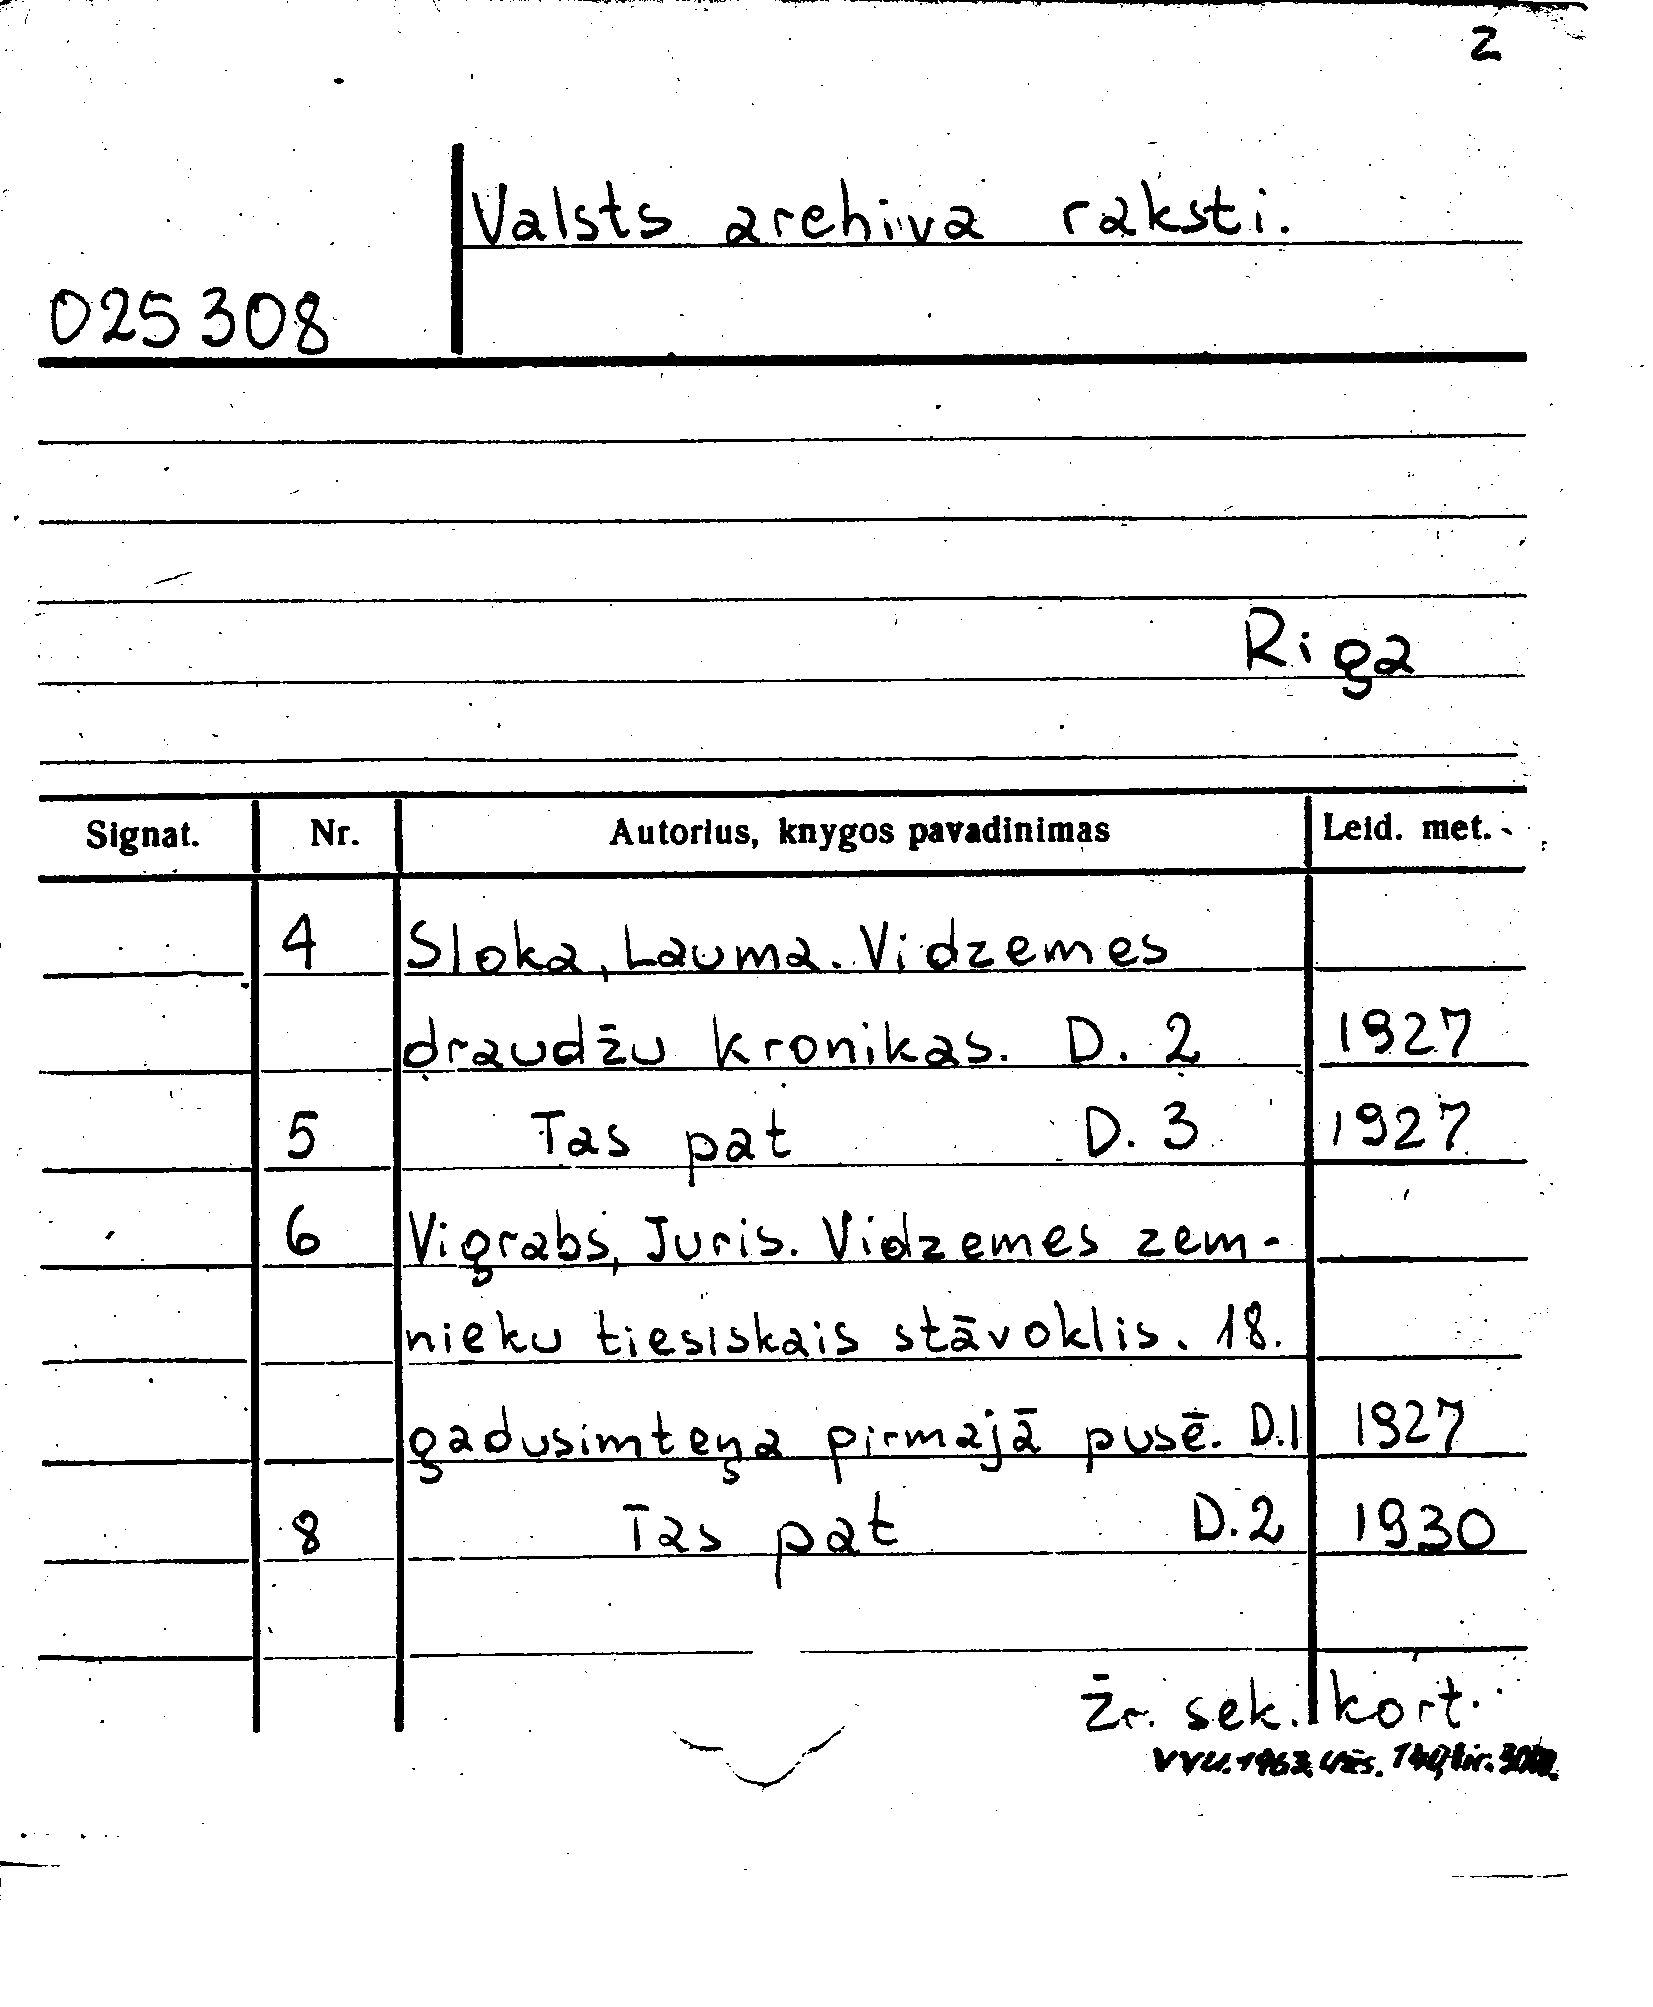 2
Valsts archiva raksti.
025308
Riga
Signat. Nr. Autorius, knygos pavadinimas Leid. met.
4 Sloka, Lauma. Vidzemes
draudžu kronikas. D. 2 1927
5 Tas pat D. 3 1927
6 Vigrabs, Juris. Vidzemes zem-
nieku tiesiskais stāvoklis. 18.
gadusimteņa pirmajā pusē. D.1 1927
8 Tas pat D.2 1930
Žr. sek. kort.
VVU. 1963. Užs.